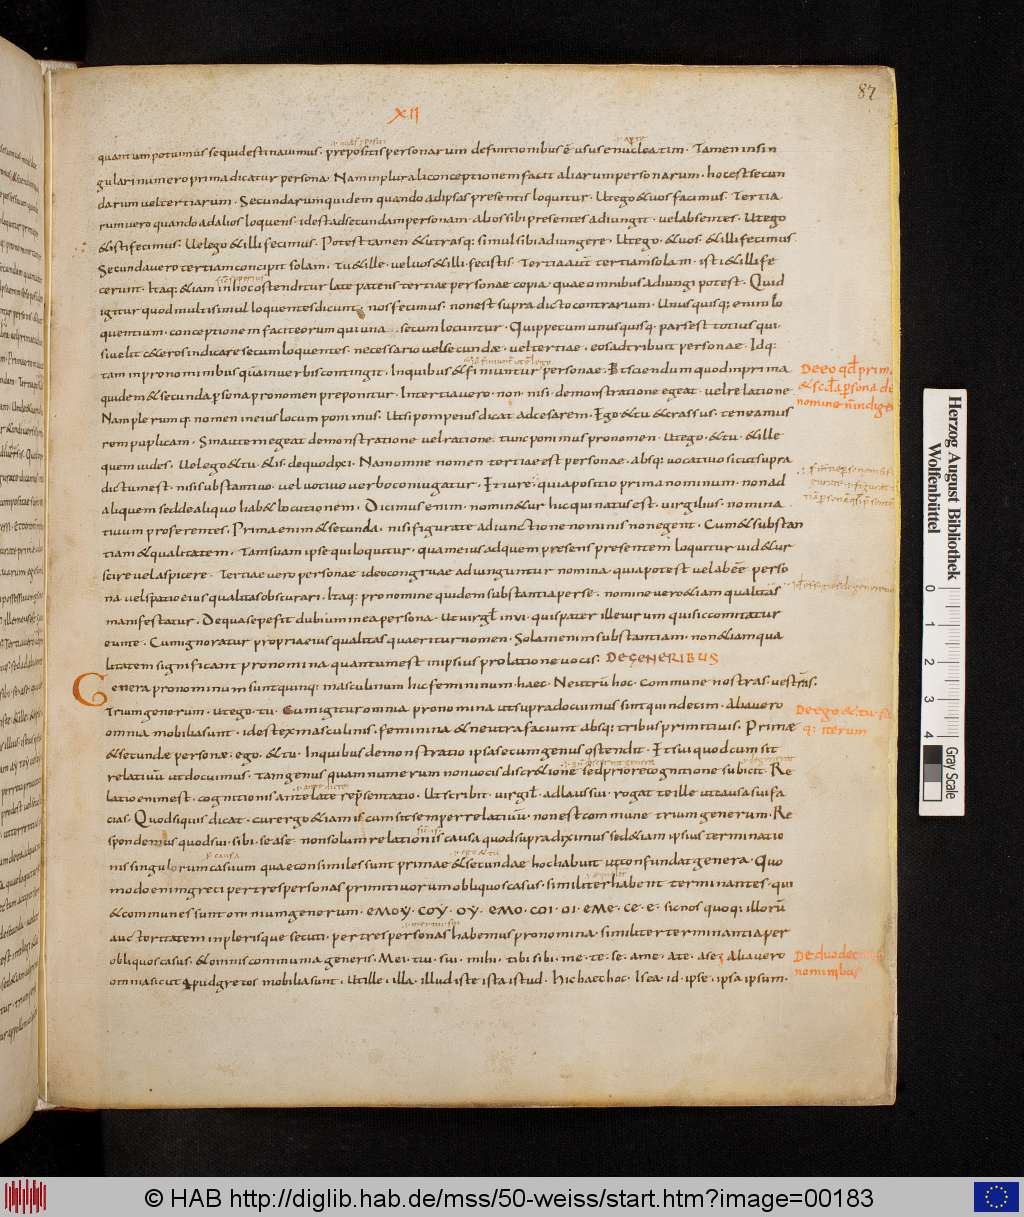 87
XII
quantum potuimus sequi destinauimus. prepositis personarum definitionibus ē usus enucleatim. Tamen in sin
gulari numero prima dicatur persona. Nam in plurali conceptionem facit aliarum personarum. hoc est secun
darum uel tertiarum. Secundarum quidem quando ad ipsas presentis loquitur. Ut ego & uos facimus. Tertia
rum uero quando ad alios loquens. id est ad secundam personam. alios sibi presentes adiungit. uel absentes. Ut ego
& isti fecimus. Uel ego & illi fecimus. Potest tamen & utrasq; simul sibi adiungere. Ut ego. & uos. & illi fecimus
Secunda uero tertiam concipit solam. Tu & ille. uel uos & illi. fecistis. Tertia aut̄ tertiam solam. isti & illi fe
cerunt. Itaq; &iam in hoc ostenditur late patens tertiae personae copia quae omnibus adiungi potest. Quid
igitur quod multi simul loquentes dicunt nos fecimus. non est supra dicto contrarium. Unusquisq; enim lo
quentium. conceptionem facit eorum qui una secum locuntur. Quippe cum unusquisq; pars est totius qui.
si uelit ceteros indicare secum loquentes. necessario uel secundae. uel tertiae. eos adtribuit personae. Idq;
tam in pronominibus quam in uerbis contingit. In quibus & finiuntur personae. Et sciendum quod in prima
quidem & secunda persona pronomen preponitur. In tertia uero. non nisi demonstratione egeat. uel relatione
Nam plerumq; nomen in eius locum ponimus. Ut si pompeius dicat ad cesarem. Ego & tu & crassus. teneamus
rem puplicam. Sin autem egeat demonstratione uel ratione. tunc ponimus pronomen. Ut ego. & tu. & ille
quem uides. Uel ego & tu. & is de quo dixi. Nam omne nomen tertiae est personae. absq; uocatiuo sicut supra
dictum est. nisi substantiuo. uel uotiuo uerbo coniugatur. Et iure. quia positio prima nominum. non ad
aliquem sed de aliquo hab& locutionem. Dicimus enim. nomin&ur hic qui natus est. uirgilius. nomina
tiuum proferentes. Prima enim & secunda. nisi figurate adiunctione nominis non egent. Cum & substan
tiam & qualitatem. Tam suam ipse qui loquitur. quam eius ad quem presens presentem loquitur uid&ur
scire uel aspicere. Tertiae uero personae ideo congruae adiunguntur nomina. quia potest uel abeē perso
na uel spatio eius qualitas obscurari. Itaq; pronomine quidem substantia per se. nomino uero &iam qualitas
manifestatur. De qua sepe fit dubium in ea persona. Ut uirgl̄ in vi. quis pater ille uirum qui sic comitatur
eunte. Cum ignoratur propria eius qualitas quaeritur nomen. Solam enim substantiam. non &iam qua
litatem significant pronomina quantum est in ipsius prolatione uocis. DE GENERIBUS
Genera pronominum sunt quinq; masculinum hic femininum. haec. Neutrū hoc. commune nostras. uestras.
Trium generum. ut ego. tu. Cum igitur omnia pronomina ut supra docuimus sint quindecim. alia uero
omnia mobilia sunt. id est ex masculinis. feminina & neutra faciunt absq; tribus primitiuis. Primae
& secundae personae. ego. & tu. In quibus demonstratio ipsa secum genus ostendit. Et sui quod cum sit
relatiuū ut docuimus. tam genus quam numerum non uocis discr&ione sed priore cognitione subicit. Re
latio enim est. cognitionis ante latae rep̄sentatio. Ut scribit. uirgil̄. ad lausum. rogat te ille ut causa sui fa
cias. Quod si quis dicat. cur ergo &iam is cum sit semper relatiuū. non est commune trium generum. Re
spondemus quod sui. sibi. se a se. non solum relationis causa quod supra diximus sed &iam ipsius terminatio
nis singulorum casuum quae consimiles sunt primae & secundae hoc habuit ut confundat genera. Quo
modo enim greci per tres personas primitiuorum obliquos casus. similiter habent terminantes. qui
& communes sunt omnium generum. ЄΜΟΥ. COY. OY. ЄMO. COI. OI. ЄMЄ. CЄ. Є. sic nos quoq; illorū
auctoritatem in plerisque secuti. per tres personas habemus pronomina. similiter terminantia per
obliquos casus. & omnis communia generis. Mei. tui. sui. mihi. tibi. sibi. me. te. se. a me. a te. a se; Alia uero
omnia sicut apud gretos mobilia sunt. Ut ille. illa. illud iste ista istud. Hic haec hoc. Is ea. id. ipse. ipsa ipsum.
De duodecim
nominibus
Herzog August Bibliothek
Wolfenbüttel
0 1 2 3 4
Gray Scale
© HAB http://diglib.hab.de/mss/50-weiss/start.htm?image=00183